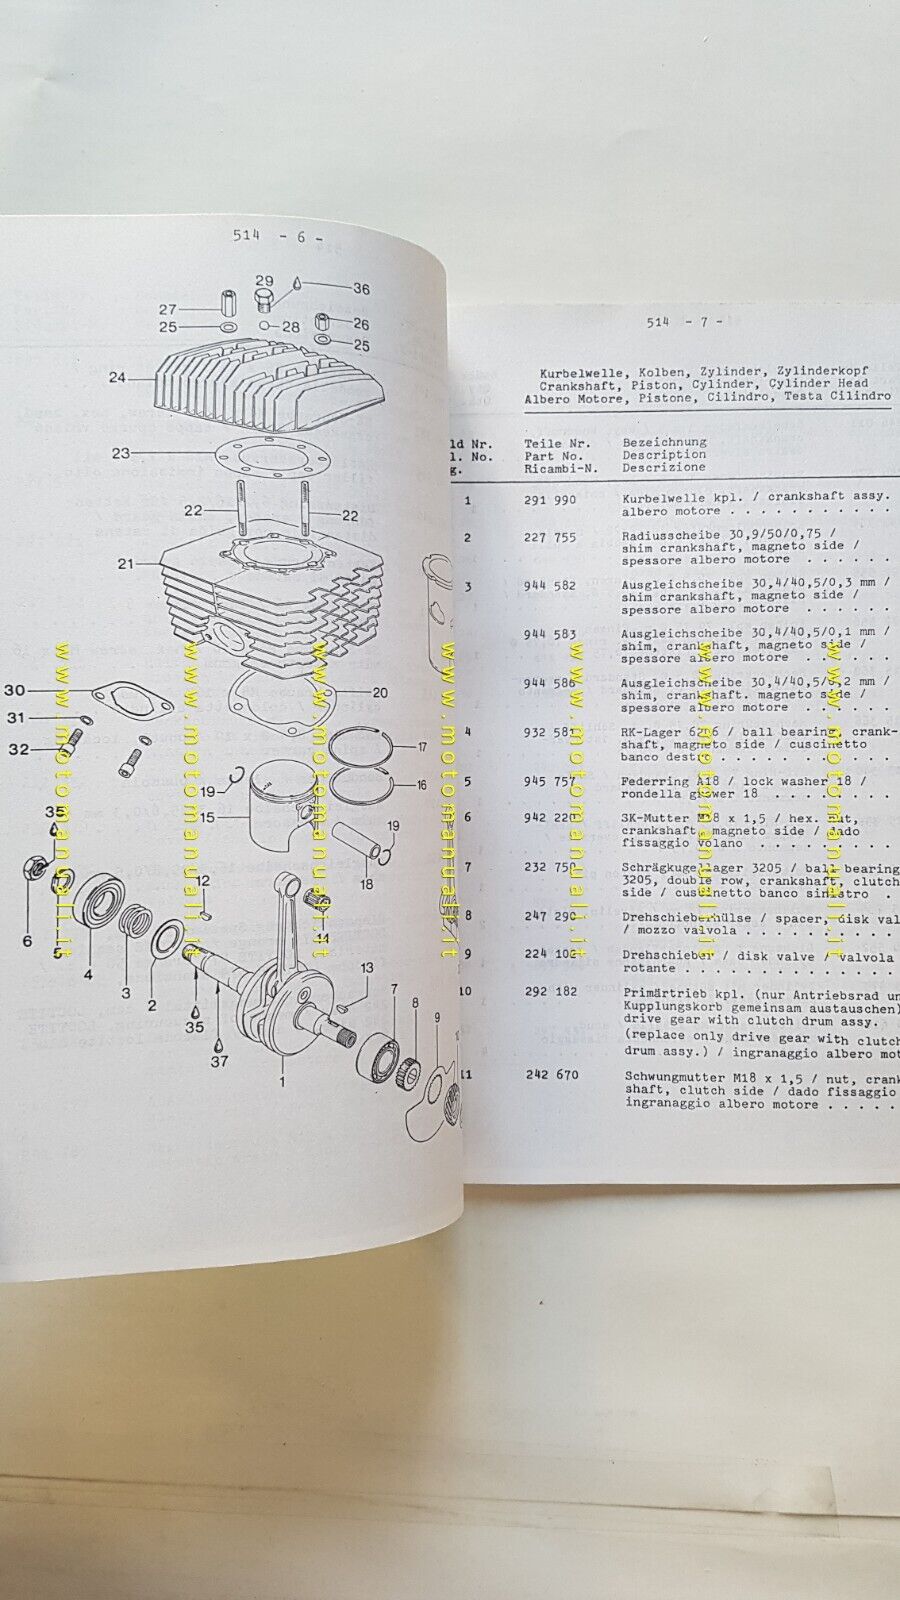 514 - 6 -
29
36
27
25
28
26
25
24
23
22
22
21
30
31
32
20
17
16
19
15
19
18
35
6
5
4
3
2
12
14
13
7
8
9
35
37
1
514 - 7 -
Kurbelwelle, Kolben, Zylinder, Zylinderkopf
Crankshaft, Piston, Cylinder, Cylinder Head
Albero Motore, Pistone, Cilindro, Testa Cilindro
ld Nr. Teile Nr. Bezeichnung
l. No. Part No. Description
g. Ricambi-N. Descrizione
1 291 990 Kurbelwelle kpl. / crankshaft assy.
albero motore . . . . . . . . . . .
2 227 755 Radiusscheibe 30,9/50/0,75 /
shim crankshaft, magneto side /
spessore albero motore . . . . . .
3 944 582 Ausgleichscheibe 30,4/40,5/0,3 mm /
shim crankshaft, magneto side /
spessore albero motore . . . . . .
944 583 Ausgleichscheibe 30,4/40,5/0,1 mm /
shim, crankshaft, magneto side /
spessore albero motore . . . . . .
944 586 Ausgleichscheibe 30,4/40,5/0,2 mm /
shim, crankshaft. magneto side /
spessore albero motore . . . . . .
4 932 581 RK-Lager 6206 / ball bearing, crank-
shaft, magneto side / cuscinetto
banco destro . . . . . . . . . . .
5 945 757 Federring A18 / lock washer 18 /
rondella grower 18 . . . . . . . .
6 942 220 SK-Mutter M18 x 1,5 / hex. nut,
crankshaft, magneto side / dado
fissaggio volano . . . . . . . . .
7 232 750 Schrägkugellager 3205 / ball bearing
3205, double row, crankshaft, clutch
side / cuscinetto banco sinistro .
8 247 290 Drehschieberhülse / spacer, disk val
/ mozzo valvola . . . . . . . . . .
9 224 100 Drehschieber / disk valve / valvola
rotante . . . . . . . . . . . . . .
10 292 182 Primärtrieb kpl. (nur Antriebsrad un
Kupplungskorb gemeinsam austauschen)
drive gear with clutch drum assy.
(replace only drive gear with clutch
drum assy.) / ingranaggio albero mot
11 242 670 Schwungmutter M18 x 1,5 / nut, crank
shaft, clutch side / dado fissaggio
ingranaggio albero motore . . . . .
www.motomanuali.it
www.motomanuali.it
www.motomanuali.it
www.motomanuali.it
www.motomanuali.it
www.motomanuali.it
www.motomanuali.it